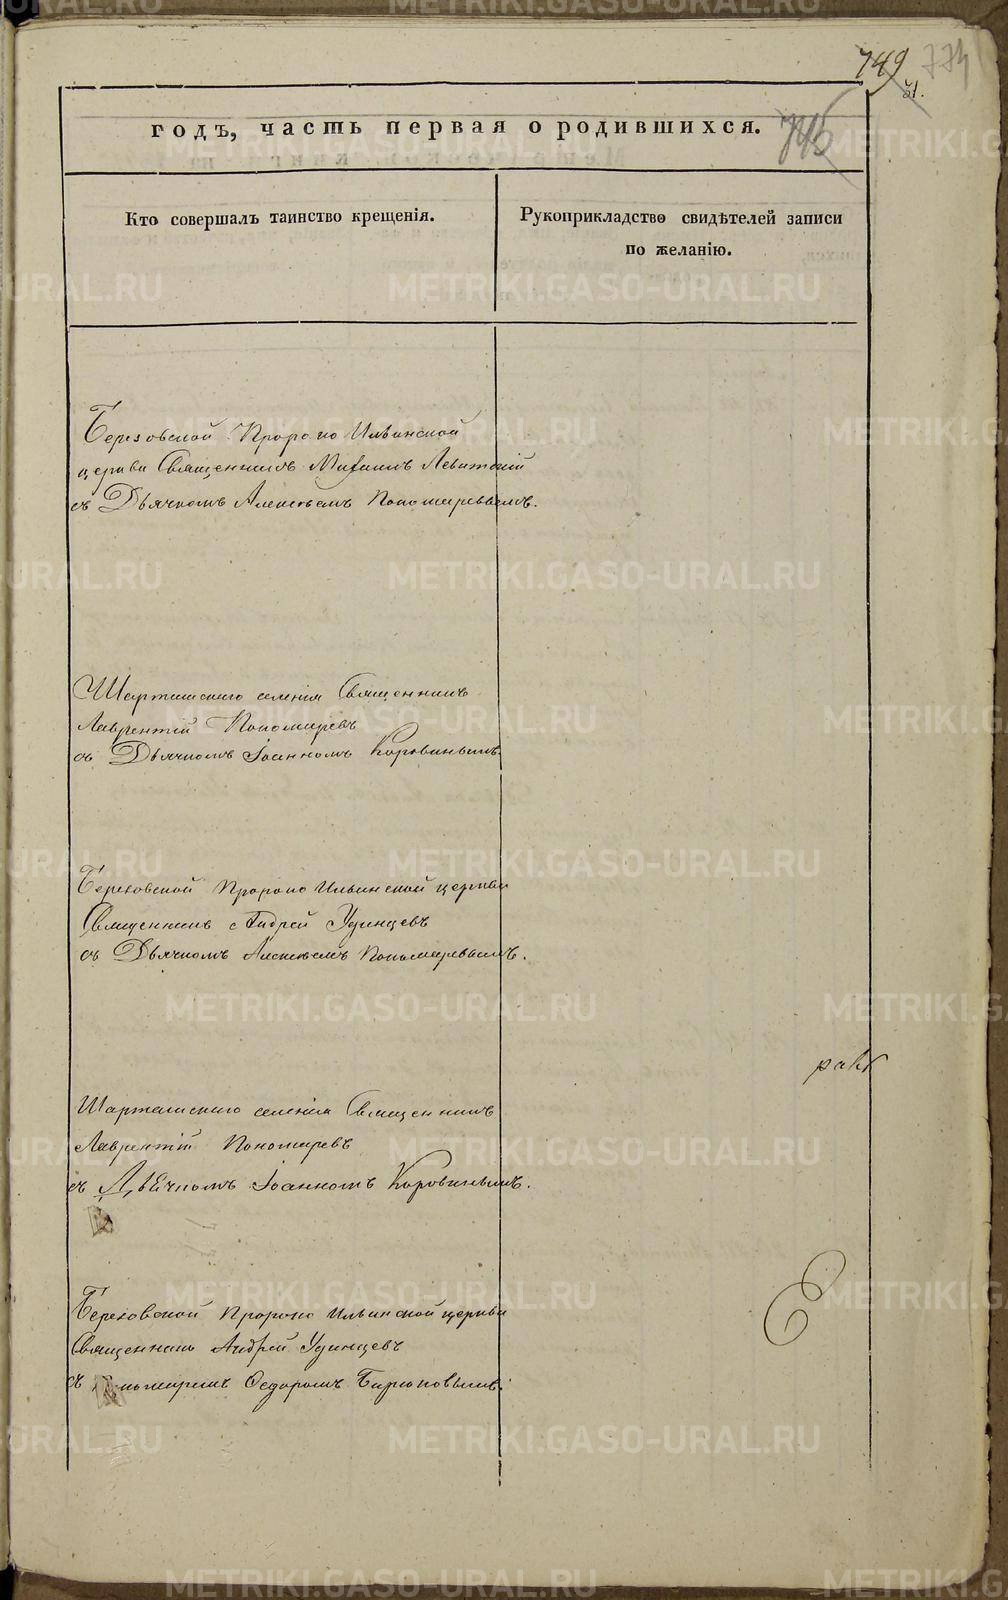 749 774
51.
745
годъ, часть первая о родившихся.
Кто совершалъ таинство крещенія.
Рукоприкладство свидѣтелей записи
по желанію.
Березовской Пророко Ильинской
церкви Священникъ Михаилъ Левитскій
съ Дьячкомъ Алексѣемъ Пономаревымъ.
Шарташскаго селенія Священникъ
Лаврентій Пономаревъ
съ Дьячкомъ Іоанномъ Коровинымъ.
Березовской Пророко Ильинской церкви
Священникъ Андрей Удинцевъ
съ Дьячкомъ Алексѣемъ Пономаревымъ.
Шарташскаго селенія Священникъ
Лаврентій Пономаревъ
съ Дьячкомъ Іоанномъ Коровинымъ.
Березовской Пророко Ильинской церкви
Священникъ Андрей Удинцевъ
съ Пономаремъ Ѳедоромъ Бирюковымъ.
METRIKI.GASO-URAL.RU